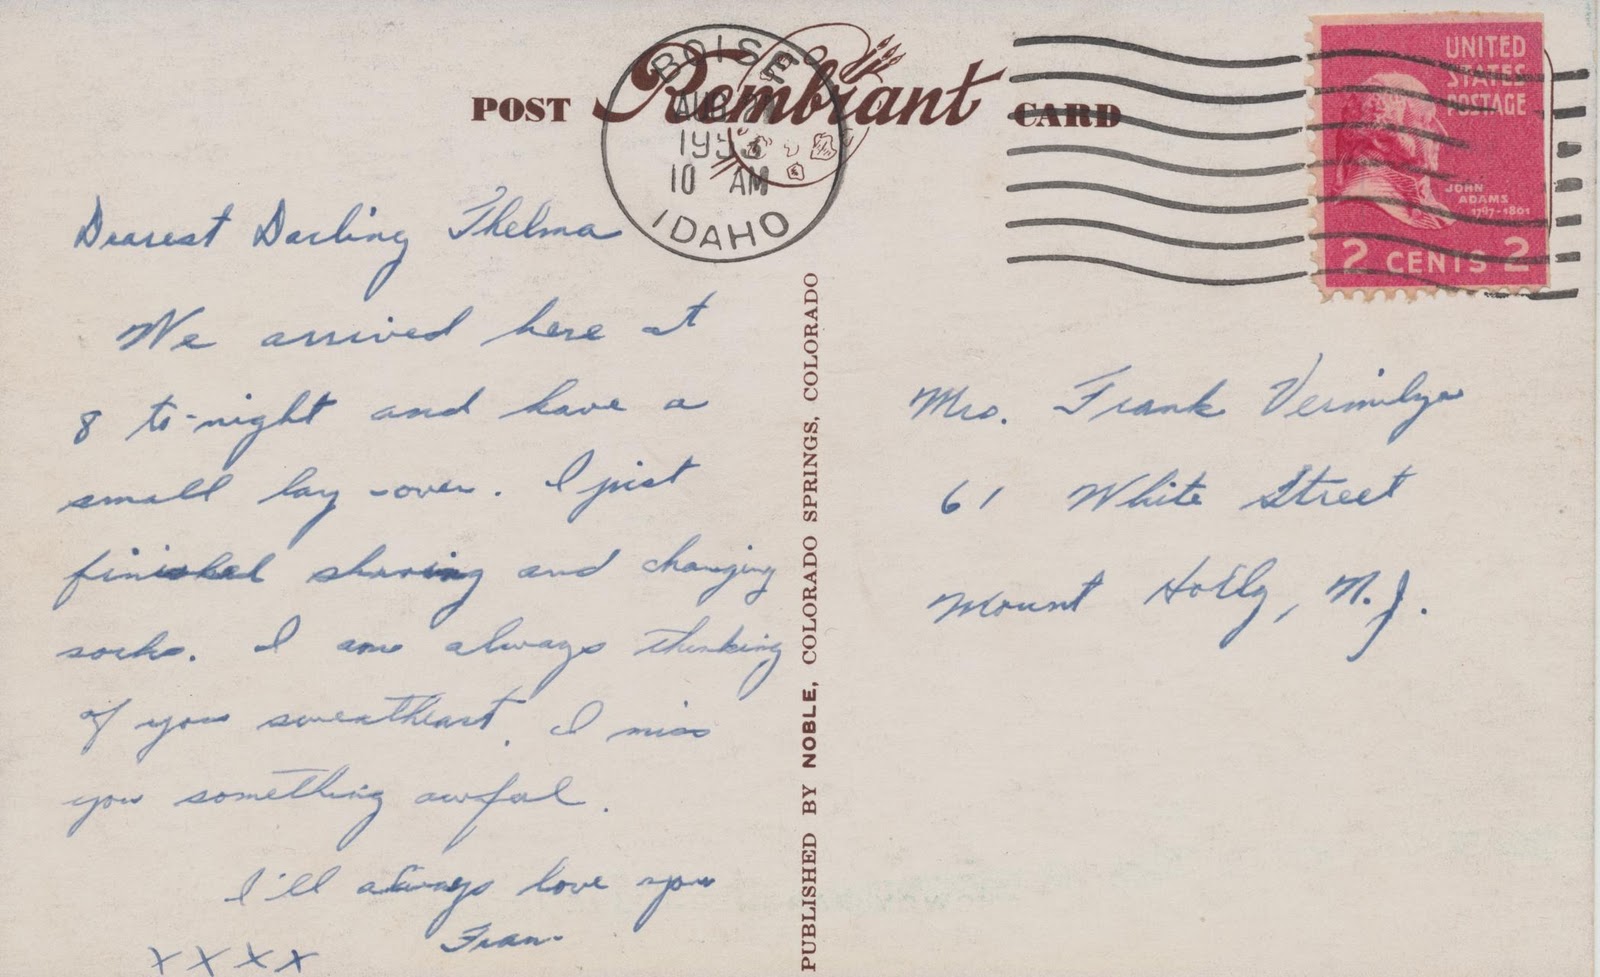 POST Rembrant CARD
BOISE
1953
10 AM
IDAHO
UNITED
STATES
POSTAGE
JOHN
ADAMS
1797-1801
2 CENTS 2
Dearest Darling Thelma
We arrived here at
8 to-night and have a
small lay-over. I just
finished shaving and changing
socks. I am always thinking
of you sweetheart. I miss
you something awful.
I'll always love you
Fran.
XXXX
PUBLISHED BY NOBLE, COLORADO SPRINGS, COLORADO
Mrs. Frank Vermilya
61 White Street
Mount Holly, N.J.